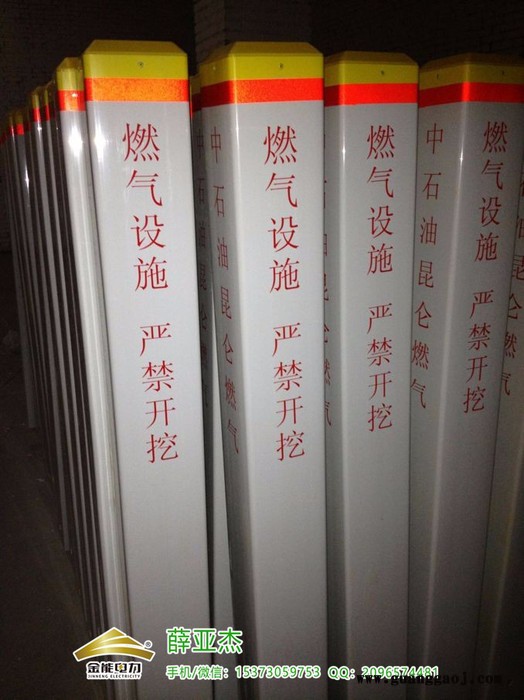 燃气设施 严禁开挖
中石油昆仑燃气
燃气设施 严禁开挖
石油昆仑燃气
燃气设施 严禁开挖
中石油昆仑燃气
燃气设施 严禁开挖
金能电力
JINNENG ELECTRICITY
薛亚杰
手机/微信：15373059753 QQ：2096574481
www.guanggaoj.com